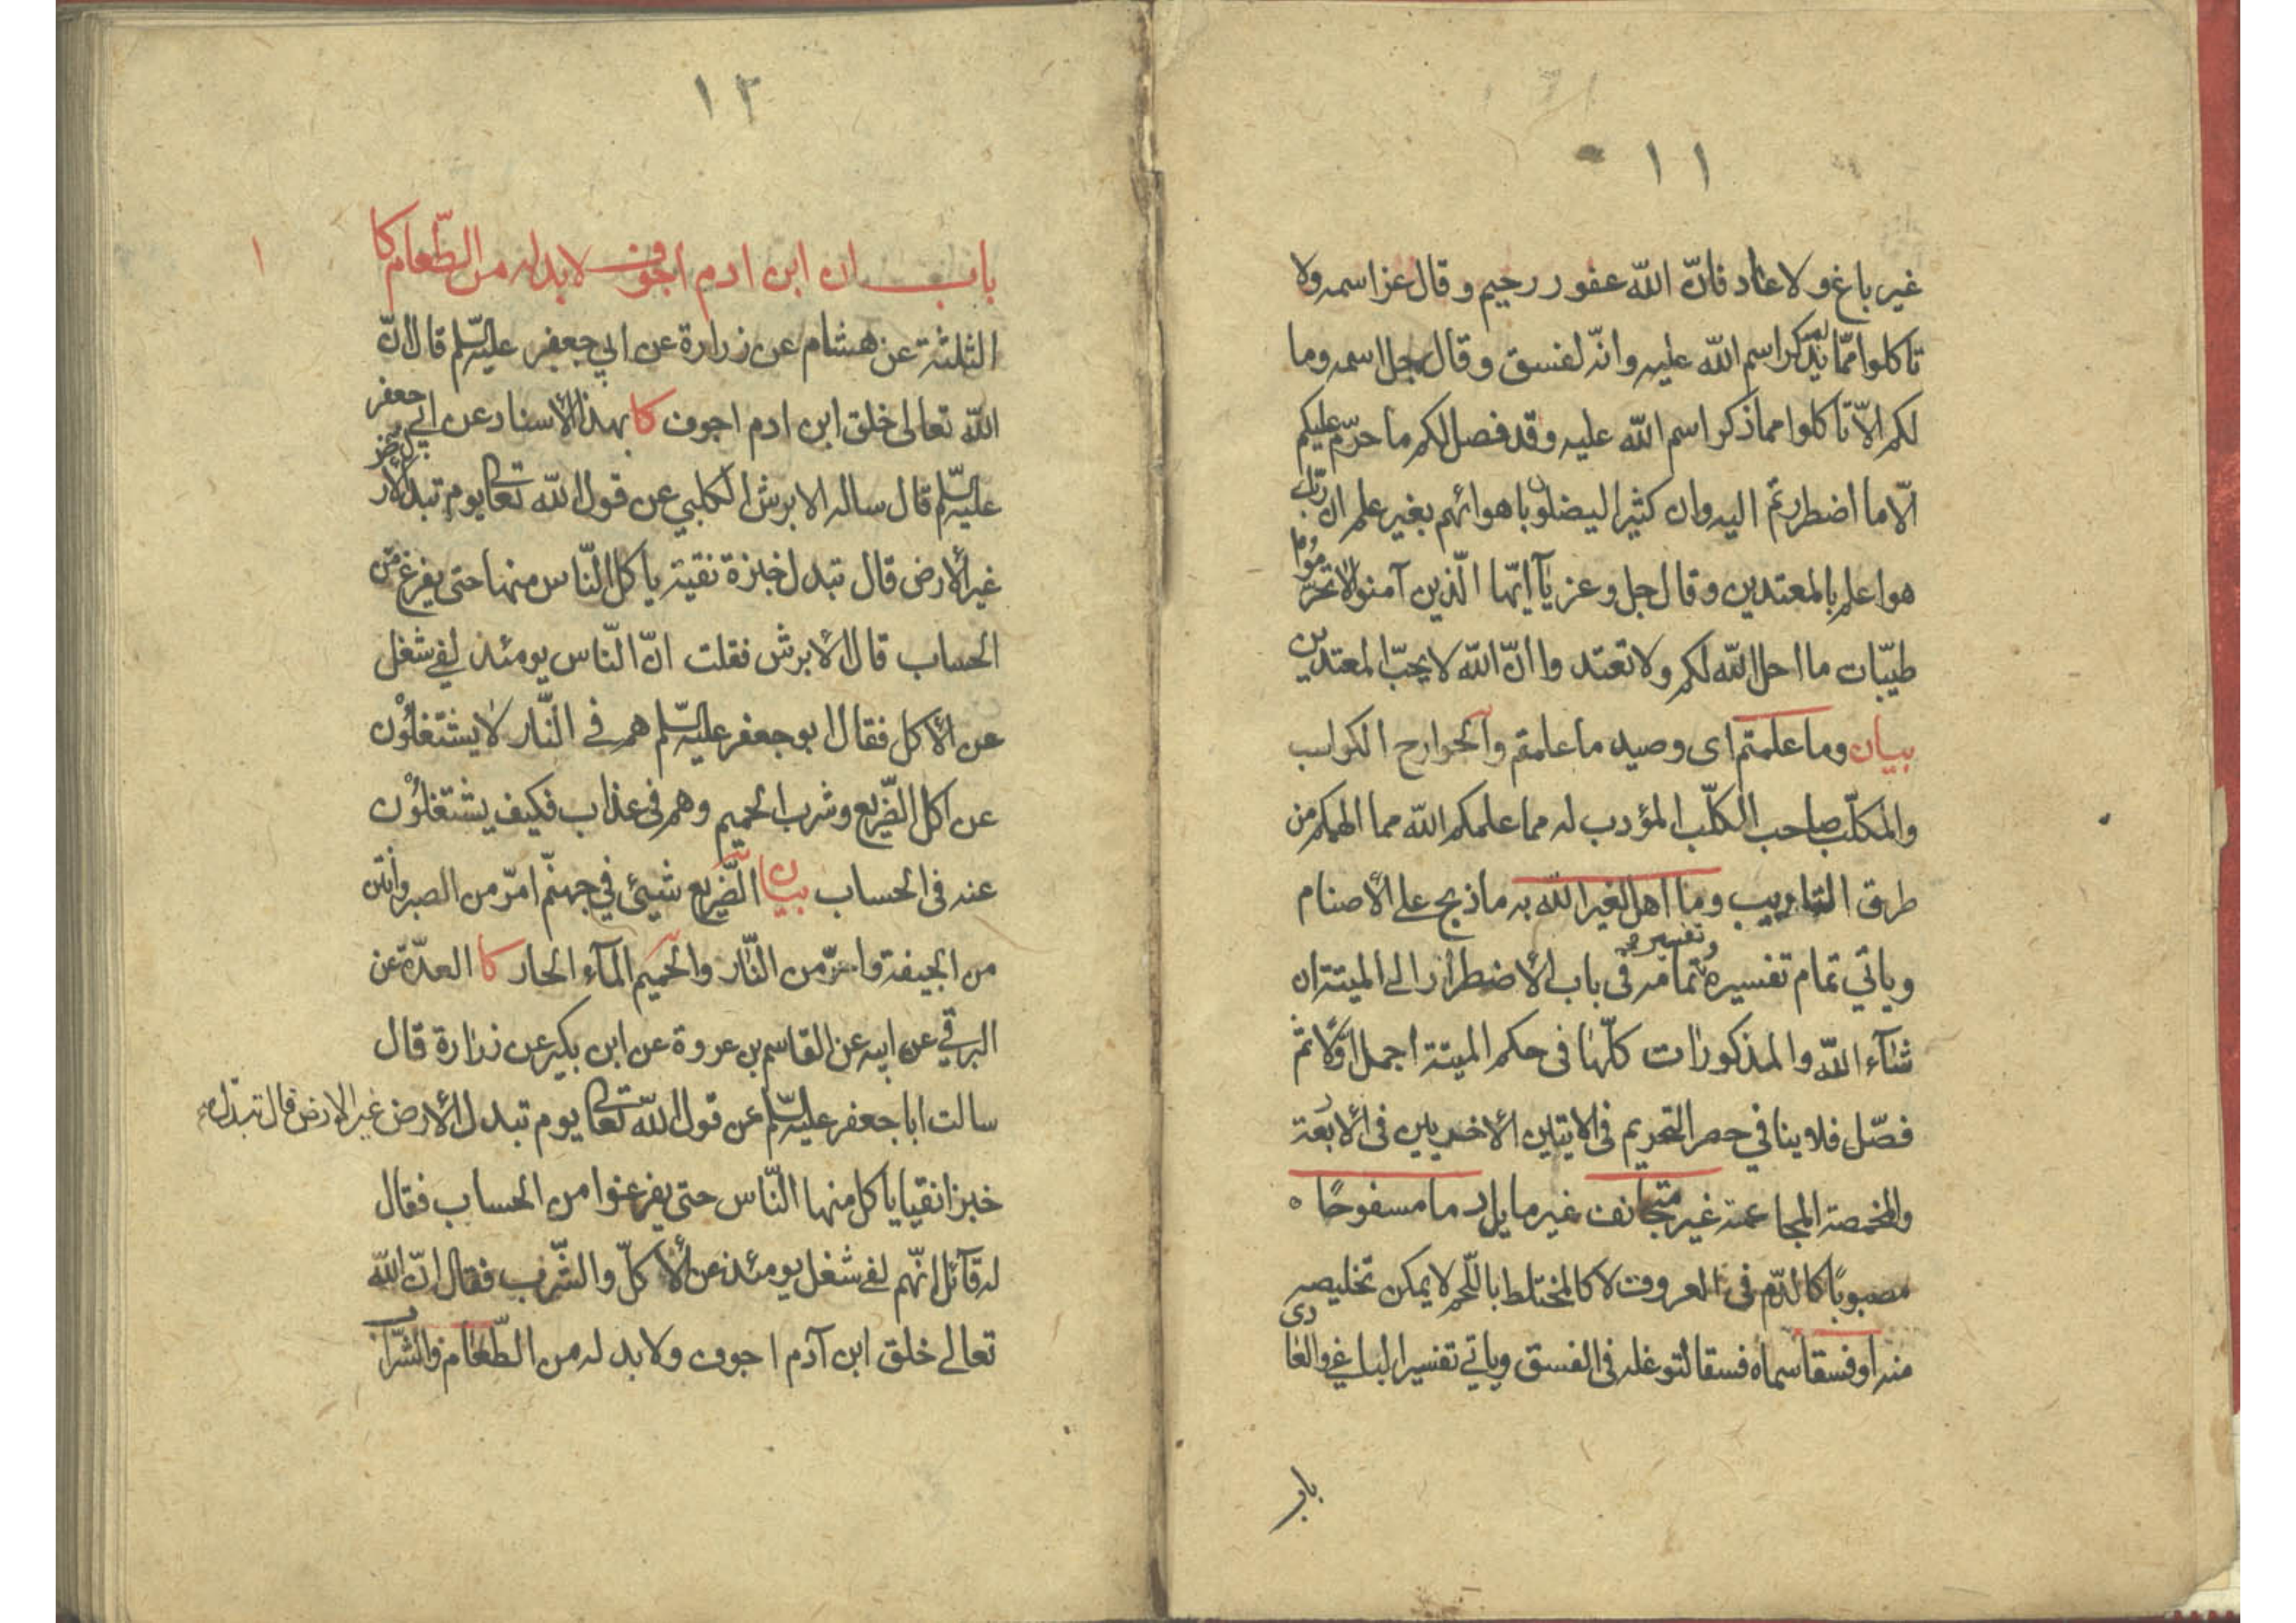 ١١
غير باغ ولا عاد فانّ الله غفور رحيم وقال عز اسمه ولا
تاكلوا ممّا لم يذكر اسم الله عليه وانّه لفسق وقال جل اسمه وما
لكم الاّ تاكلوا مما ذكر اسم الله عليه وقد فصل لكم ما حرّم عليكم
الّا ما اضطررتم اليه وان كثيرا ليضلون باهوائهم بغير علم ان ربّك
هو اعلم بالمعتدين وقال جل وعز يآ ايّها الّذين آمنوا لا تحرّموا
طيّبات ما احل الله لكم ولا تعتدوا انّ الله لا يحبّ المعتدين
بيان وما علمتم اى وصيد ما علمتم والجوارح الكواسب
والمكلّب صاحب الكلّب المؤدب له مما علمكم الله مما الهمكم من
طرق التاديب وما اهل لغير الله به ما ذبح على الأصنام
وياتي تمام تفسيره وتفسير تمامه فى باب الأضطرار الى الميتة ان
شآء الله والمذكورات كلّها فى حكم الميتة اجمل اوّلا ثمّ
فصّل فلا ينافي حصر التحريم فى الايتين الأخيريين فى الأربعة
والمخمصة المجاعة غير متجانف غير مايل دما مسفوحًا ه
مصبوبًا كالدّم فى العروق لا كالمختلط باللّحم لا يمكن تخليصه
منه او فسقا سماه فسقا لتوغله فى الفسق وياتي تفسير الباغي والعادى
باب
١٢
باب ان ابن ادم اجوف لابد له من الطّعام كا
١
الثلثة عن هشام عن زرارة عن ابي جعفر عليه السّلم قال انّ
الله تعالى خلق ابن ادم اجوف كا بهذا الأسناد عن ابي جعفر
عليه السّلم قال ساله الابرش الكلبي عن قول الله تعالى يوم تبدل الأرض
غير الأرض قال تبدل خبزة نقية ياكل النّاس منها حتى يفرغ من
الحساب قال الأبرش فقلت انّ النّاس يومئذ لفى شغل
عن الأكل فقال ابو جعفر عليه السّلم هم في النّار لا يشتغلون
عن اكل الضّريع وشرب الحميم وهم فى عذاب فكيف يشتغلون
عنه فى الحساب بيان الضّريع شيئ في جهنّم امرّ من الصبر وانتن
من الجيفة واحرّ من النّار والحميم المآء الحار كا العدّة عن
البرقي عن ابيه عن القاسم بن عروة عن ابن بكير عن زرارة قال
سالت ابا جعفر عليه السّلم عن قول الله تعالى يوم تبدل الأرض غير الارض قال تبدّل
خبزا نقيا ياكل منها النّاس حتى يفرغوا من الحساب فقال
له قآئل انّهم لفى شغل يومئذ عن الأكلّ والشّرب فقال انّ الله
تعالى خلق ابن آدم اجوف ولابد له من الطّعام والشّراب